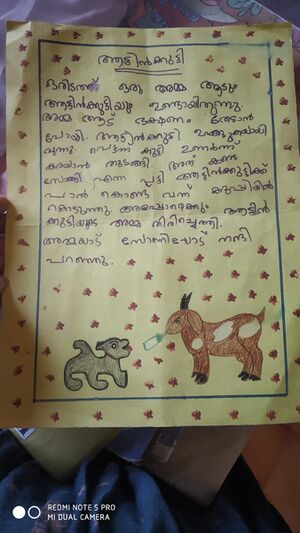 ആട്ടിൻക്കുട്ടി
ഒരിടത്ത് ഒരു അമ്മ ആടും
ആട്ടിൻക്കുട്ടിയും ഉണ്ടായിരുന്നു.
അമ്മ ആട് ഭക്ഷണം തേടാൻ
പോയി. ആട്ടിൻക്കുട്ടി ഉറങ്ങുകയായി
രുന്നു. പെട്ടന്ന് കുട്ടി ഉണർന്ന്
കരയാൻ തുടങ്ങി. അത് കണ്ട
സോണി എന്ന പട്ടി ആട്ടിൻകുട്ടിക്ക്
പാൽ കൊണ്ടു വന്ന് കുപ്പിയിൽ
കൊടുത്തു. അപ്പോഴേക്കും ആട്ടിൻ
കുട്ടിയുടെ അമ്മ തിരിച്ചെത്തി.
അമ്മയാട് സോണിയോട് നന്ദി
പറഞ്ഞു.
REDMI NOTE 5 PRO
MI DUAL CAMERA